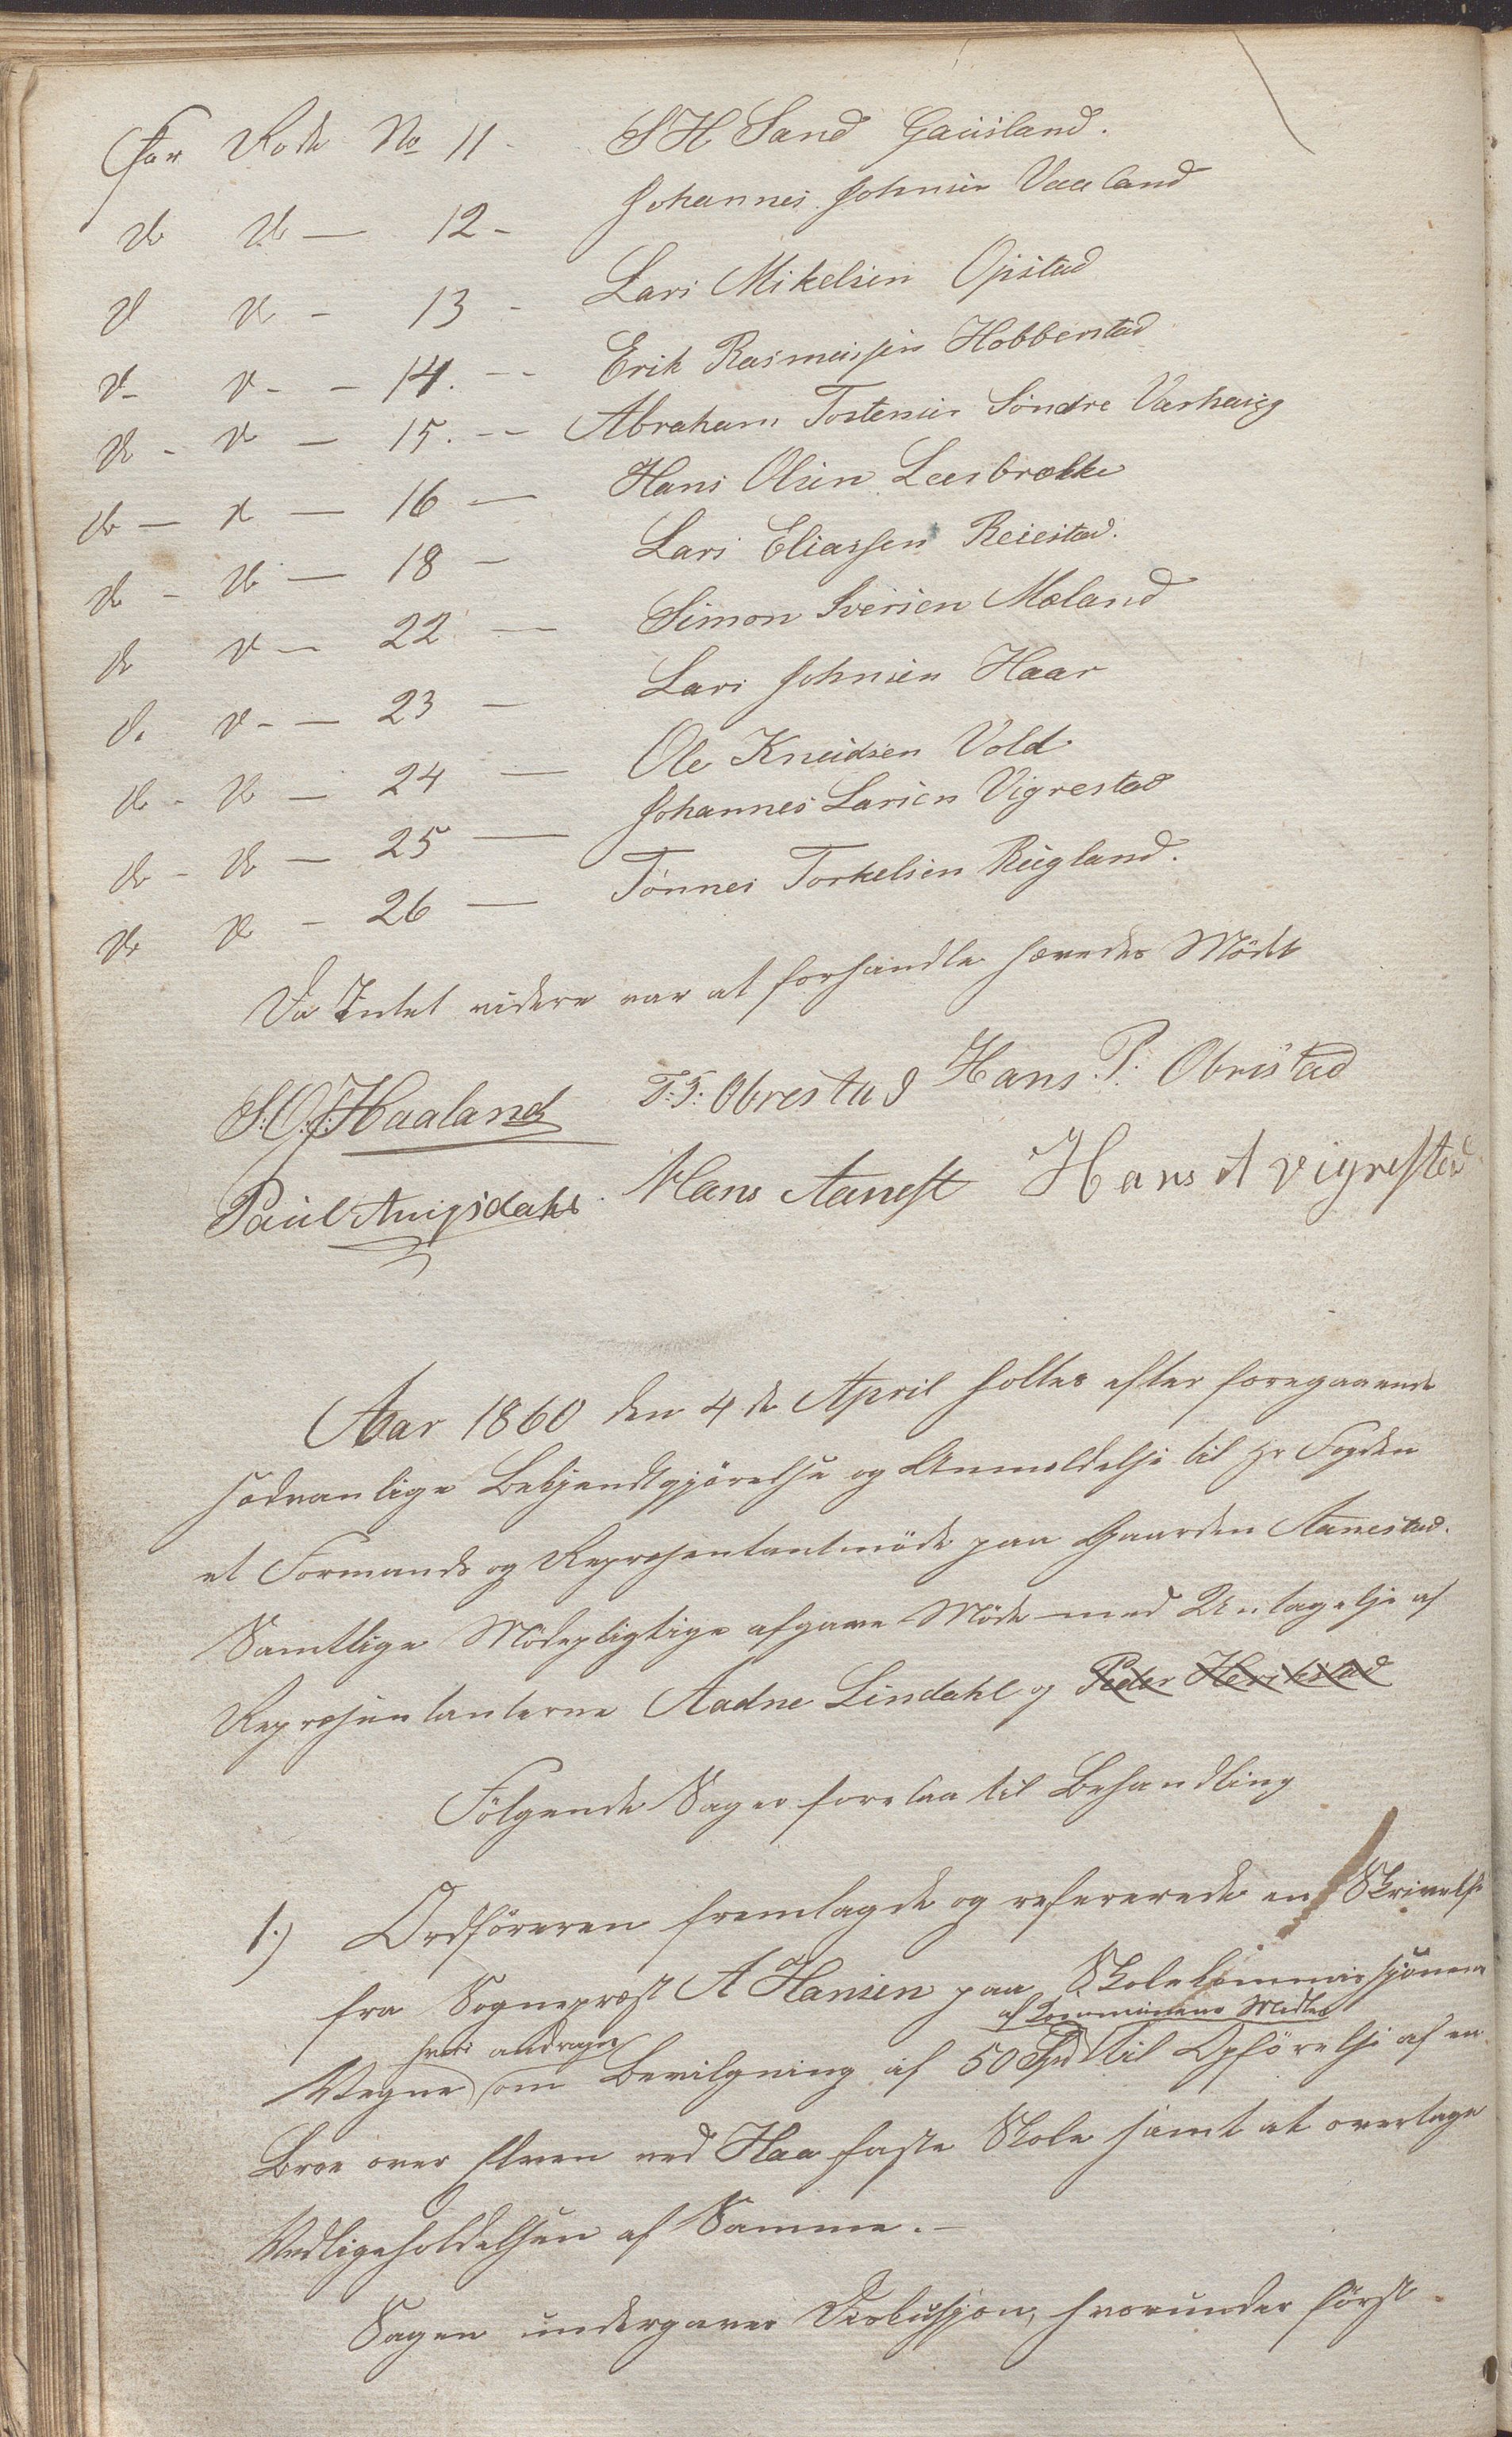 For Rode No 11 - S H Sand Gausland.
do do — 12 - Johannes Johnsen Vaaland
do do - 13 - Lars Mikelsen Opstad
do - do - - 14. - - Erik Rasmussen Hobberstad
do - do — 15. - - Abraham Tostensen Söndre Varhaug
do — do — 16 — Hans Olsen Leerbrække
do - do — 18 - Lars Eliassen Reiestad.
do do — 22 — Simon Sversen Mæland
do. do - — 23 — Lars Johnsen Haar
do - do — 24 — Ole Knudsen Vold
do - do — 25 — Johannes Larsen Vigrestad
do do - 26 — Tönnes Torkelsen Rugland.
Da Intet videre var at forhandle hævedes Mödet
S. O. Haaland T: T: Obrestad Hans. P. Obrestad
Paul Aniksdahl. Hans Aanest Hans A vigrestad
Aar 1860 den 4de April holtes efter foregaaende
sædvanlige Bekjendtgjörelse og Anmeldelse til Hr Fogden
et Formands og Repræsentantmöde paa Gaarden Aanestad.
Samtlige Mödepligtige afgave Möde med Untagelse af
Repræsentanterne Aadne Lindahl og Peder Herikstad
Fölgende Sager forelaa til Behandling
1.) Ordföreren fremlagde og refererede en Skrivelse
fra Sognepræst A Hansen paa Skolekommissjonens
hvori andrages af Kommunens Midler
Vegne om Bevilgning af 50 Spd til Opförelse af en
Broe over Elven ved Haa faste Skole samt at overtage
Vedligeholdelsen af Samme. —
Sagen undergaves Diskussjon, hvorunder först